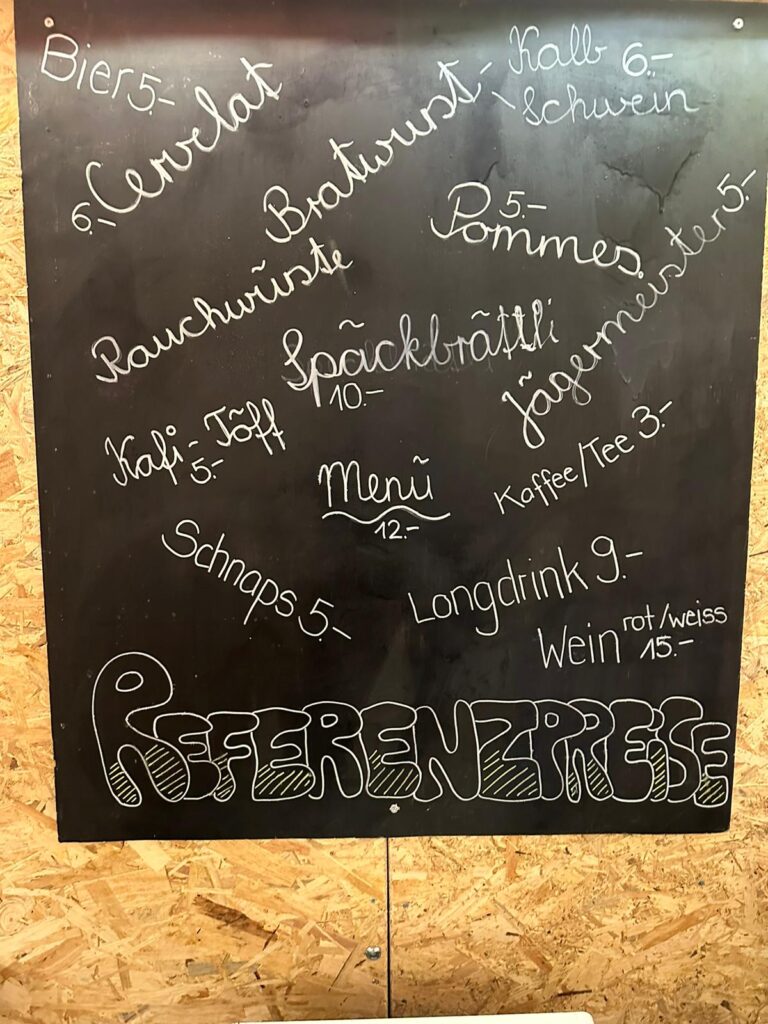 Bier 5.-
Cervelat
6.-
Bratwurst - Kalb 6.-
\ Schwein
5.-
Pommes
Jägermeister 5.-
Rauchwürste
Späckbrättli
10.-
Kafi-Töff
5.-
Menü
12.-
Kaffee/Tee 3.-
Schnaps 5.-
Longdrink 9.-
Wein rot/weiss
15.-
REFERENZPREiSE